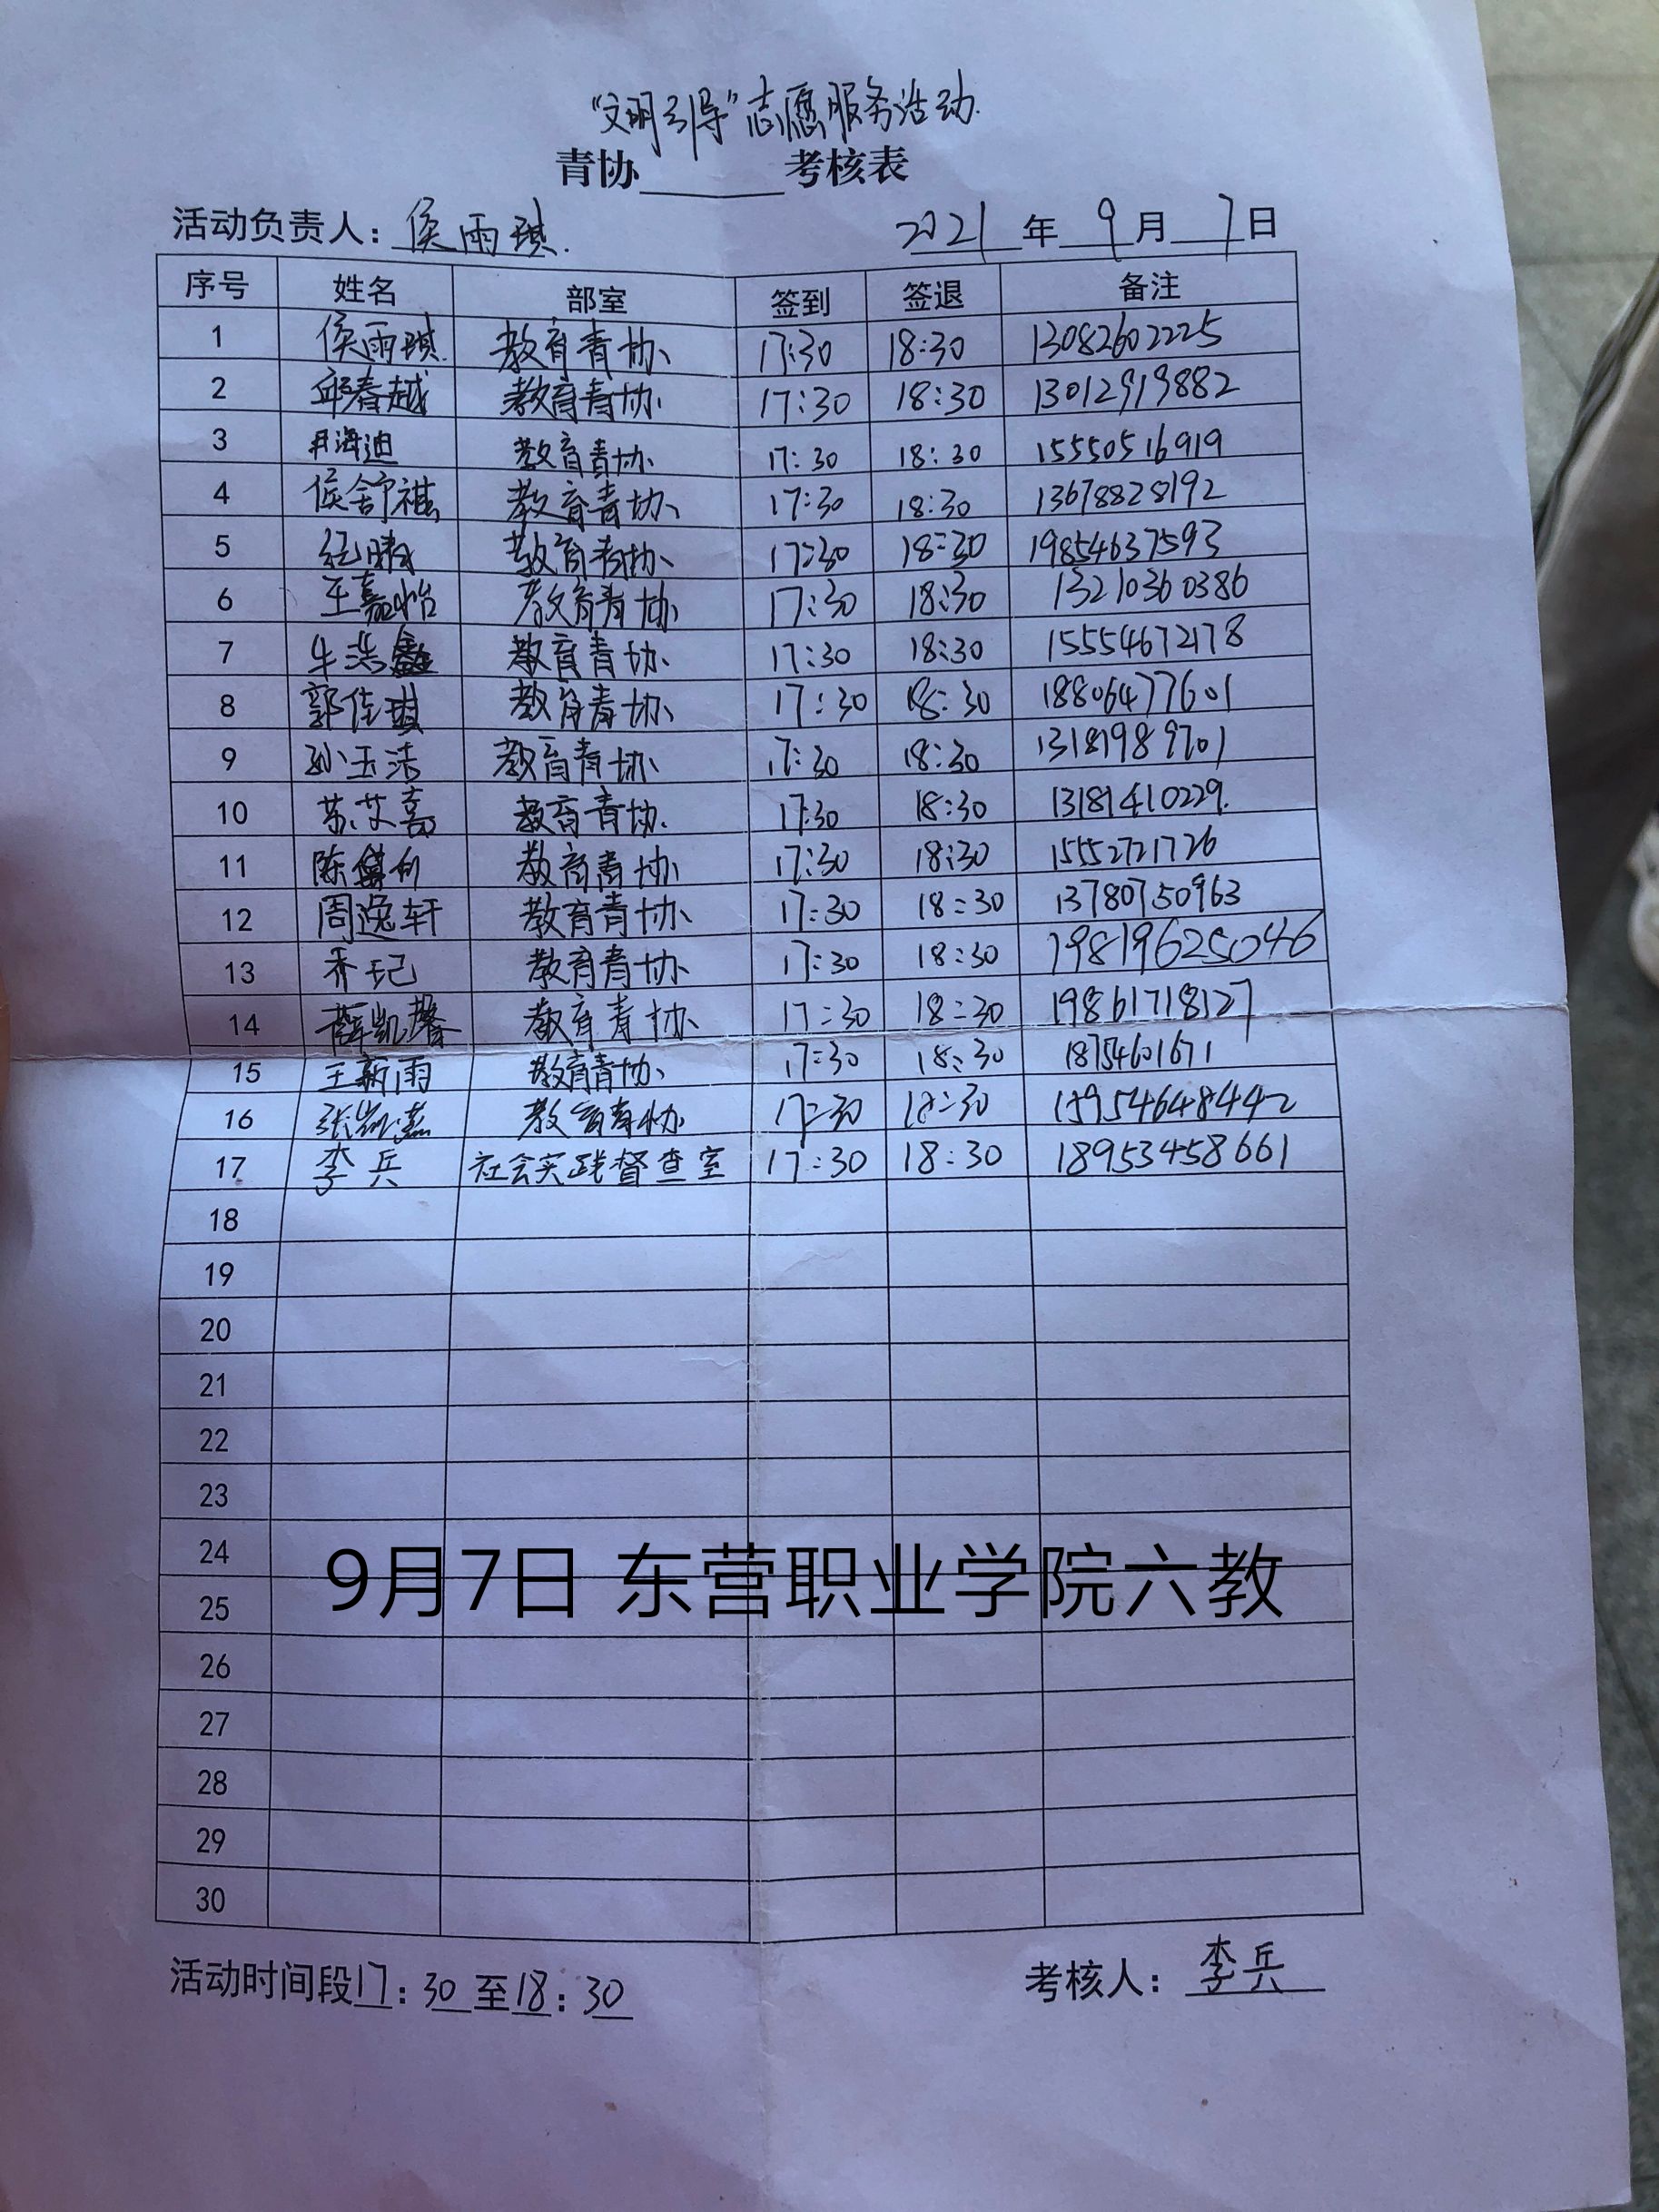 “文明引导”志愿服务活动
青协______考核表
活动负责人：侯雨琪. 2021年9月7日
序号 姓名 部室 签到 签退 备注
1 侯雨琪 教育青协 17:30 18:30 13082602225
2 邱春越 教育青协 17:30 18:30 13012919882
3 井海迪 教育青协 17:30 18:30 15550516919
4 侯舒祺 教育青协 17:30 18:30 13678828192
5 纪晴 教育青协 17:30 18:30 19854637593
6 王嘉怡 教育青协 17:30 18:30 13210360386
7 牛浩鑫 教育青协 17:30 18:30 15554672178
8 郭佳琪 教育青协 17:30 18:30 18806477601
9 孙玉洁 教育青协 17:30 18:30 13181989701
10 苏艾嘉 教育青协 17:30 18:30 13181410229.
11 陈 教育青协 17:30 18:30 15552721726
12 周逸轩 教育青协 17:30 18:30 13780750963
13 乔玘 教育青协 17:30 18:30 19819625046
14 薛凯馨 教育青协 17:30 18:30 19861718127
15 王新雨 教育青协 17:30 18:30 18754601671
16 张凯燕 教育青协 17:30 18:30 15954648442
17 李兵 社会实践督查室 17:30 18:30 18953458661
18
19
20
21
22
23
24
9月7日 东营职业学院六教
25
26
27
28
29
30
活动时间段17：30至18：30 考核人：李兵